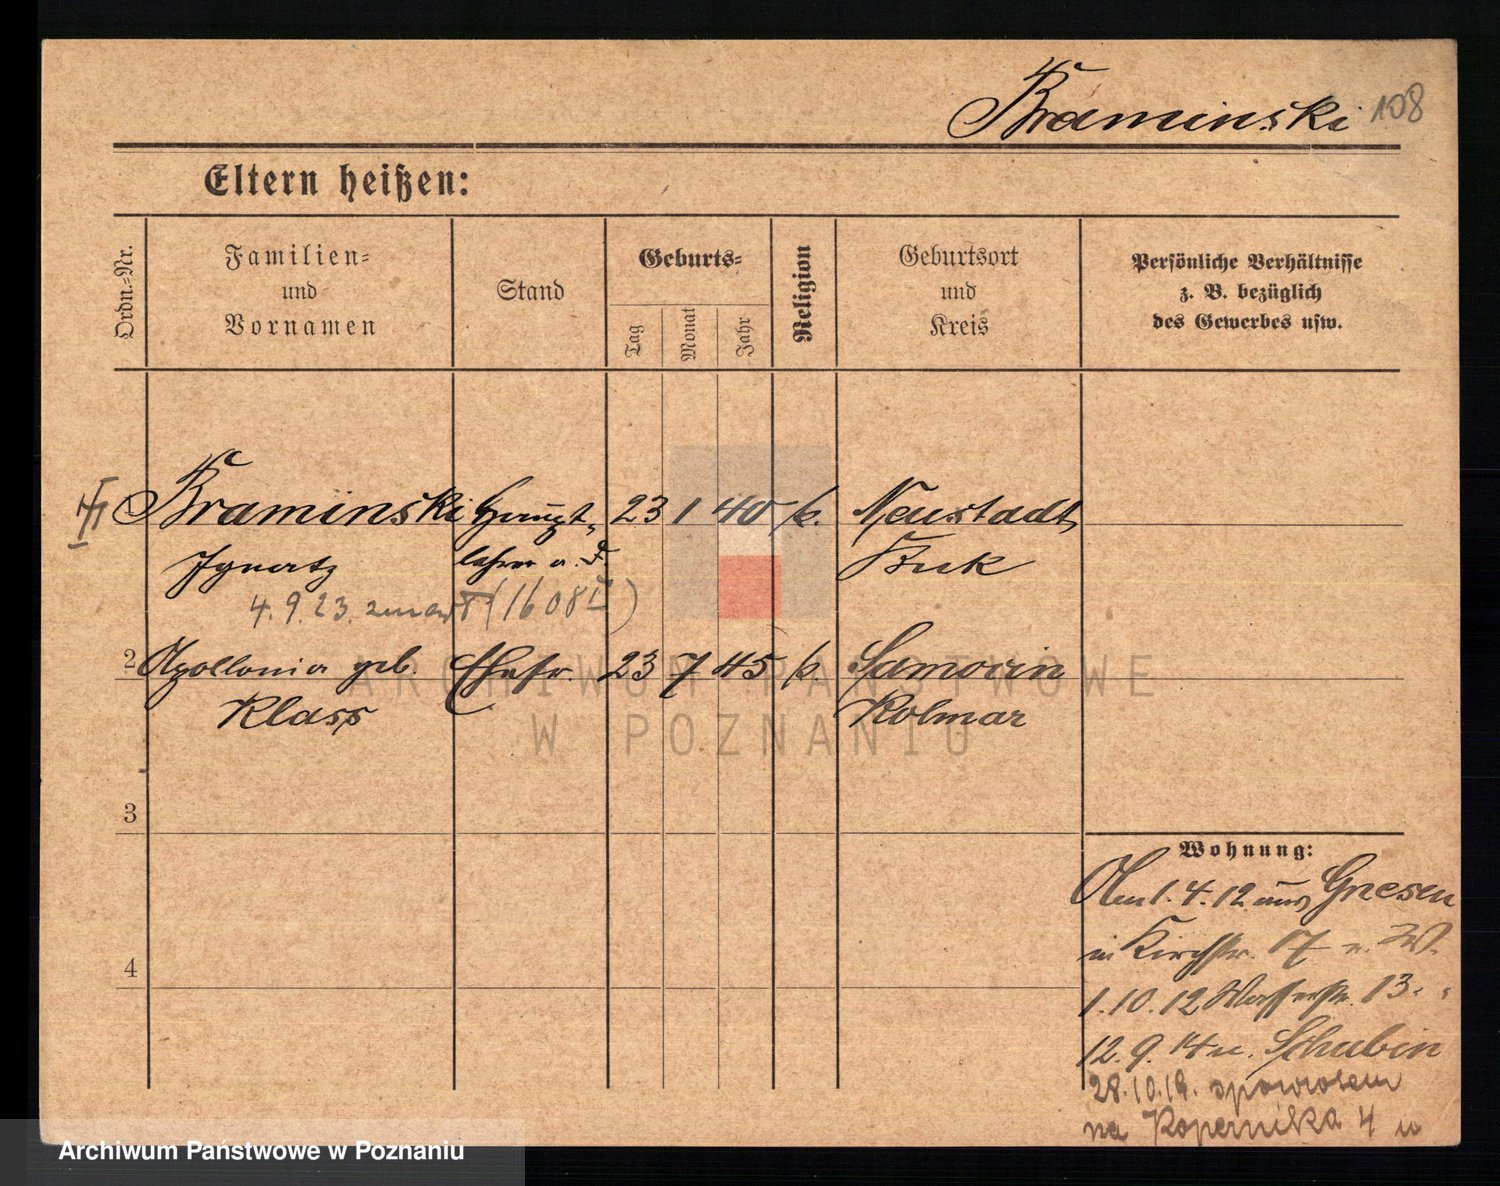 Kraminski 108
Eltern heißen:
Ordn.-Nr.
Familien-
und
Vornamen
Stand
Geburts-
Tag
Monat
Jahr
Religion
Geburtsort
und
Kreis
Persönliche Verhältnisse
z. B. bezüglich
des Gewerbes usw.
Kraminski Haupt- 23 1 40 k. Neustadt
Ignatz lehrer a. D. Buk
4.9.23. zmarł (1608 II)
2 Apollonia geb. Ehefr. 23 7 45 k. Samocin
Klass Kolmar
3
4
Wohnung:
Am 1.4.12 aus Gnesen
in Kirchstr. 17 n. W.
1.10.12 Wasserstr. 13.
12.9.14 n. Schubin
28.10.19. zpowrotem
na Kopernika 4 w
ARCHIWUM PAŃSTWOWE
W POZNANIU
Archiwum Państwowe w Poznaniu